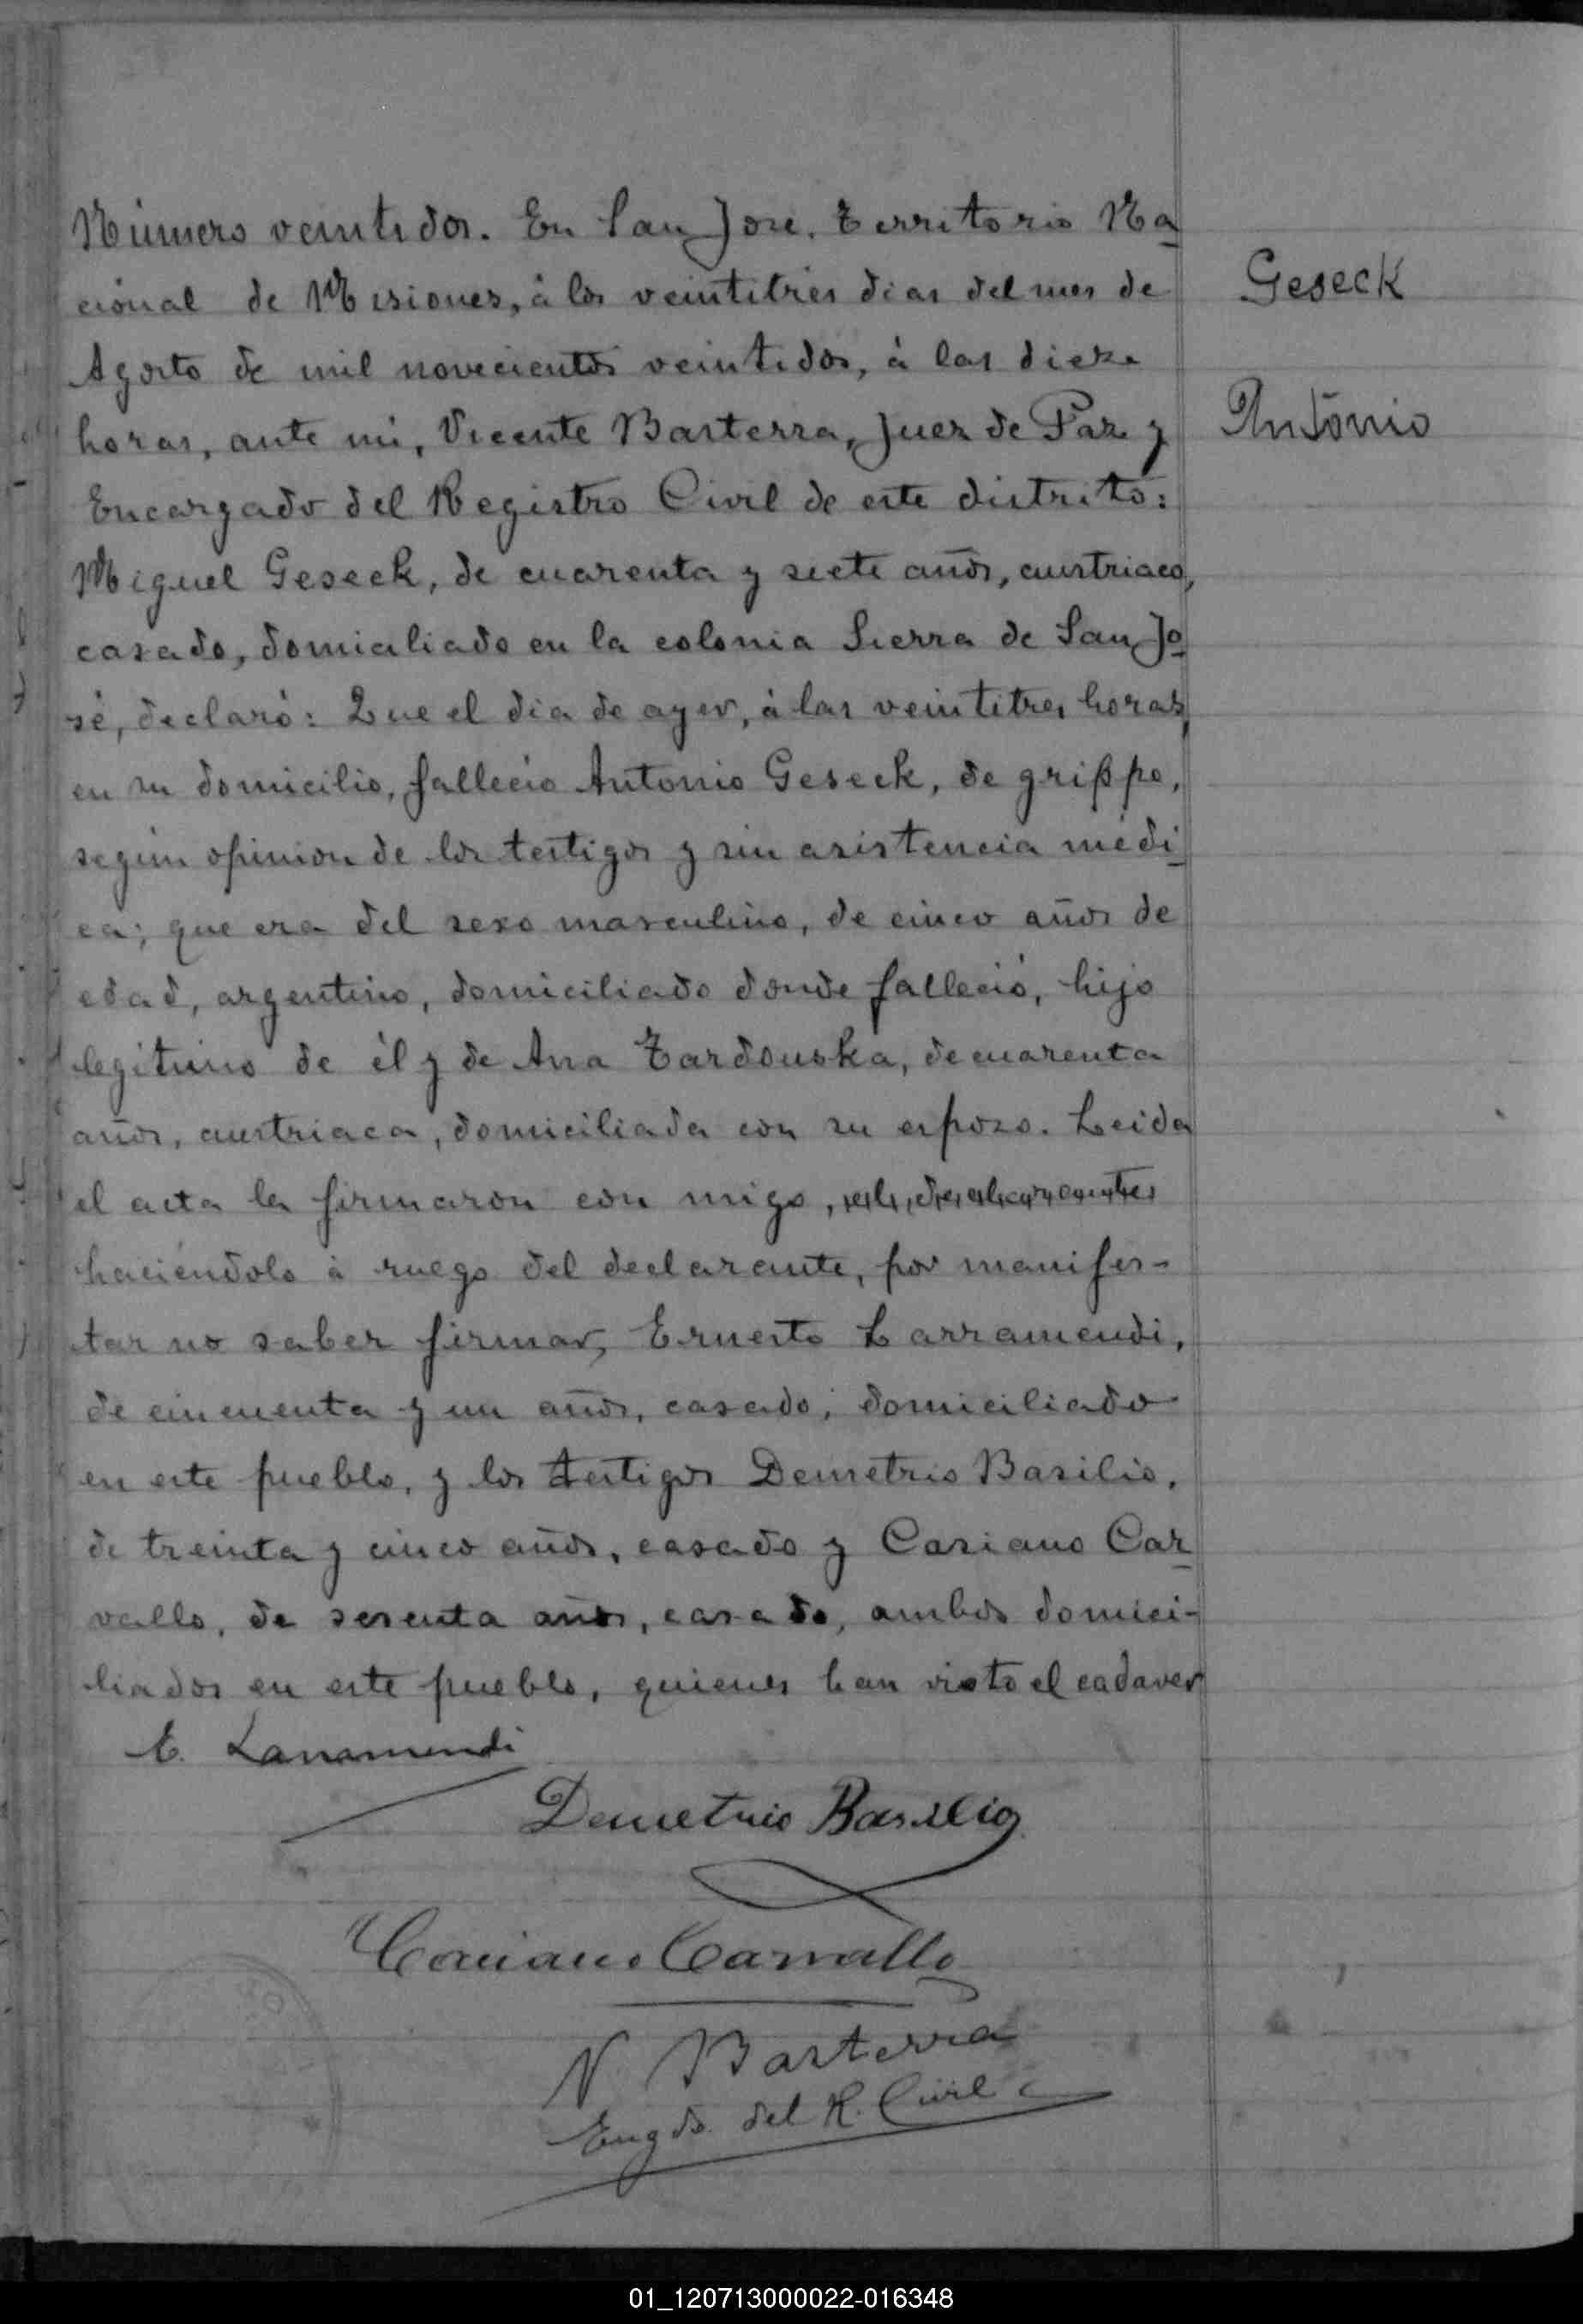 Número veintidos. En San José, Territorio Na
Geseck
cional de Misiones, á los veintitrés dias del mes de
Agosto de mil novecientos veintidos, á las diez
Antonio
horas, ante mi, Vicente Basterra, Juez de Paz y
Encargado del Registro Civil de este distrito:
Miguel Geseck, de cuarenta y siete años, austriaco,
casado, domiciliado en la colonia Sierra de San Jo
sé, declaró: Que el dia de ayer, á las veintitres horas,
en su domicilio, falleció Antonio Geseck, de grippe,
según opinion de los testigos y sin asistencia médi
ca; que era del sexo masculino, de cinco años de
edad, argentino, domiciliado donde falleció, hijo
legitimo de él y de Ana Tardouska, de cuarenta
años, austriaca, domiciliada con su esposo. Leida
el acta la firmaron con migo,
haciéndolo á ruego del declarante, por manifes-
tar no saber firmar, Ernesto Larramendi,
de cincuenta y un años, casado, domiciliado
en este pueblo, y los testigos Demetrio Basilio,
de treinta y cinco años, casado y Casiano Car
vallo, de sesenta años, casado, ambos domici-
liados en este pueblo, quienes han visto el cadaver
E. Larramendi
Demetrio Basilio
Casiano Carvallo
V. Basterra
Engdo. del R. Civil
01_120713000022-016348